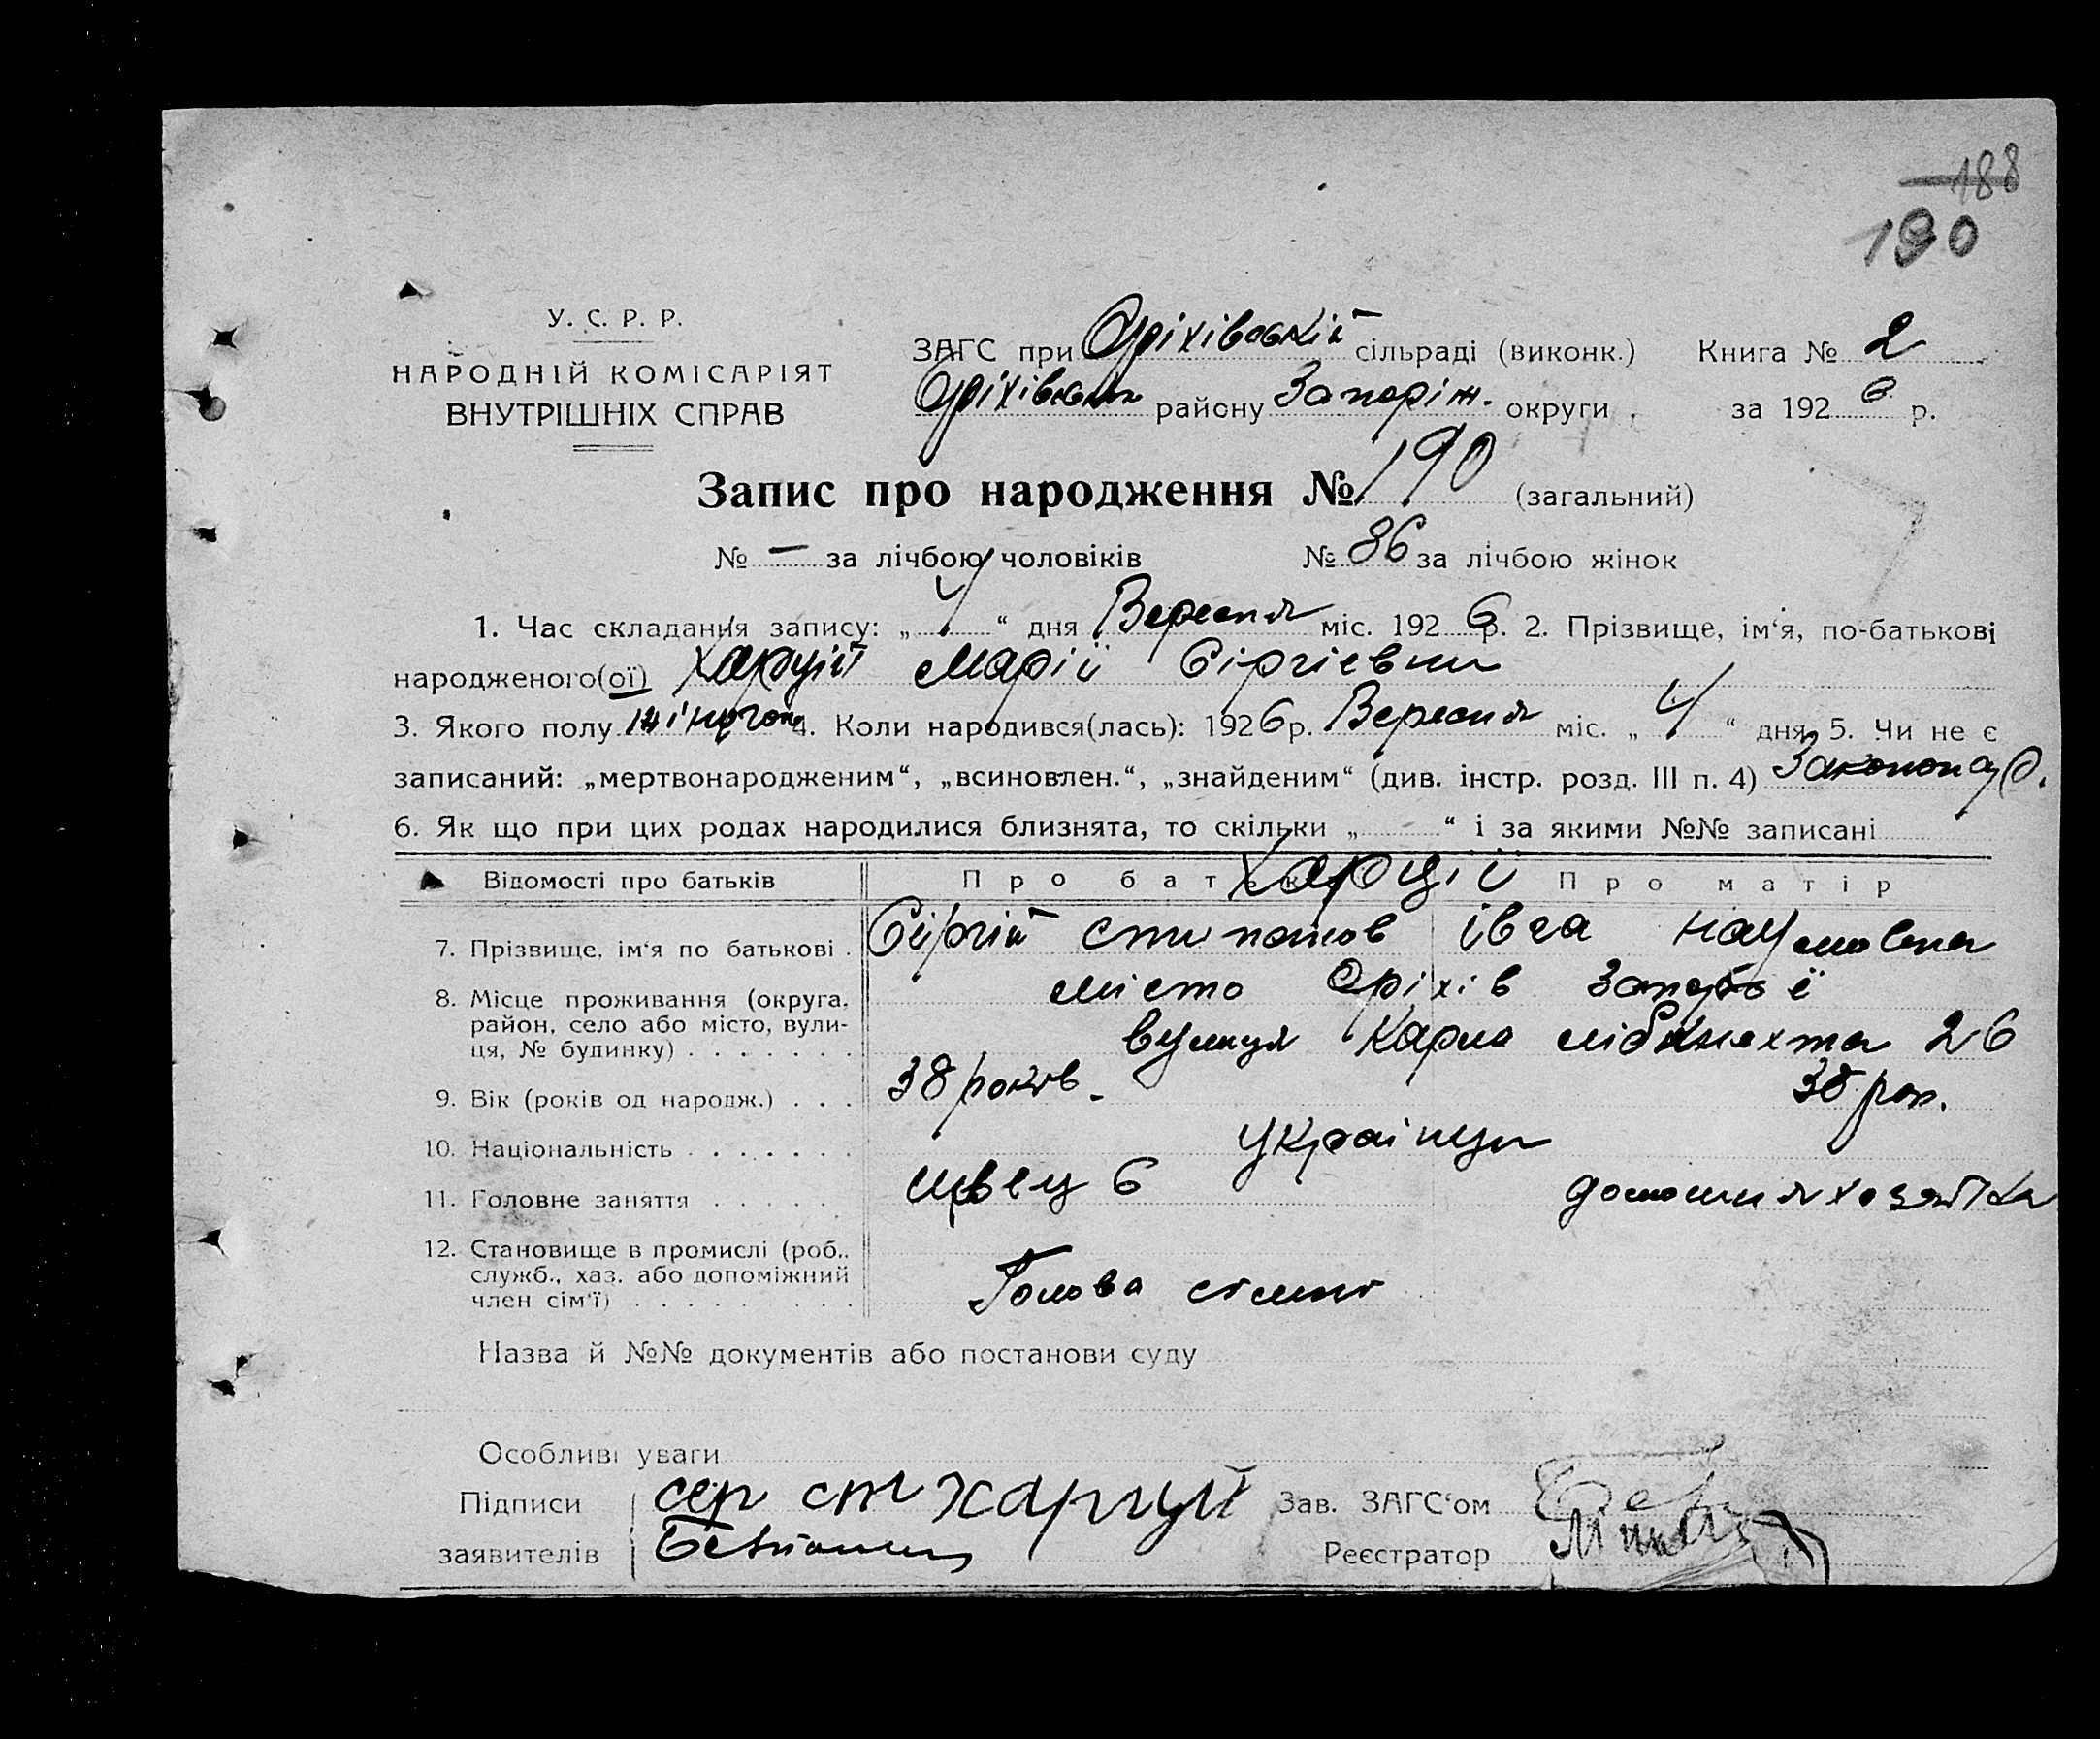 188
190
У. С. Р. Р.
НАРОДНІЙ КОМІСАРІЯТ
ВНУТРІШНІХ СПРАВ
ЗАГС при Оріхівській сільраді (виконк.) Книга № 2
Оріхівськ району Запоріж. округи за 1926 р.
Запис про народження № 190 (загальний)
№ — за лічбою чоловіків № 86 за лічбою жінок
1. Час складання запису: „ 4 “ дня Вересня міс. 1926 р. 2. Прізвище, ім‘я, по-батькові
народженого(ої) Харцій Марії Сіргієвни
3. Якого полу жіночого 4. Коли народився(лась): 1926 р. Вересня міс. „ 4 “ дня 5. Чи не є
записаний: „мертвонародженим“, „всиновлен.“, „знайденим“ (див. інстр. розд. III п. 4)
6. Як що при цих родах народилися близнята, то скільки „ “ і за якими №№ записані
Відомості про батьків Про батька Харцій Про матір
7. Прізвище, ім‘я по батькові . Сіргій Степанов Івга Наумовна
8. Місце проживання (округа, район, село або місто, вулиця, № будинку) . . . . . . . місто Оріхів
вулиця Карла Лібкнехта 26
9. Вік (років од народж.) . . . 38 років. 38 рок.
10. Національність . . . . . . . українци
11. Головне заняття . . . . . . швець домошня хозяйка
12. Становище в промислі (роб., служб., хаз. або допоміжний член сім‘ї) . . . . . . . . Голова сімьї
Назва й №№ документів або постанови суду
Особливі уваги
Підписи сер ст харцуй Зав. ЗАГС‘ом
заявителів Реєстратор